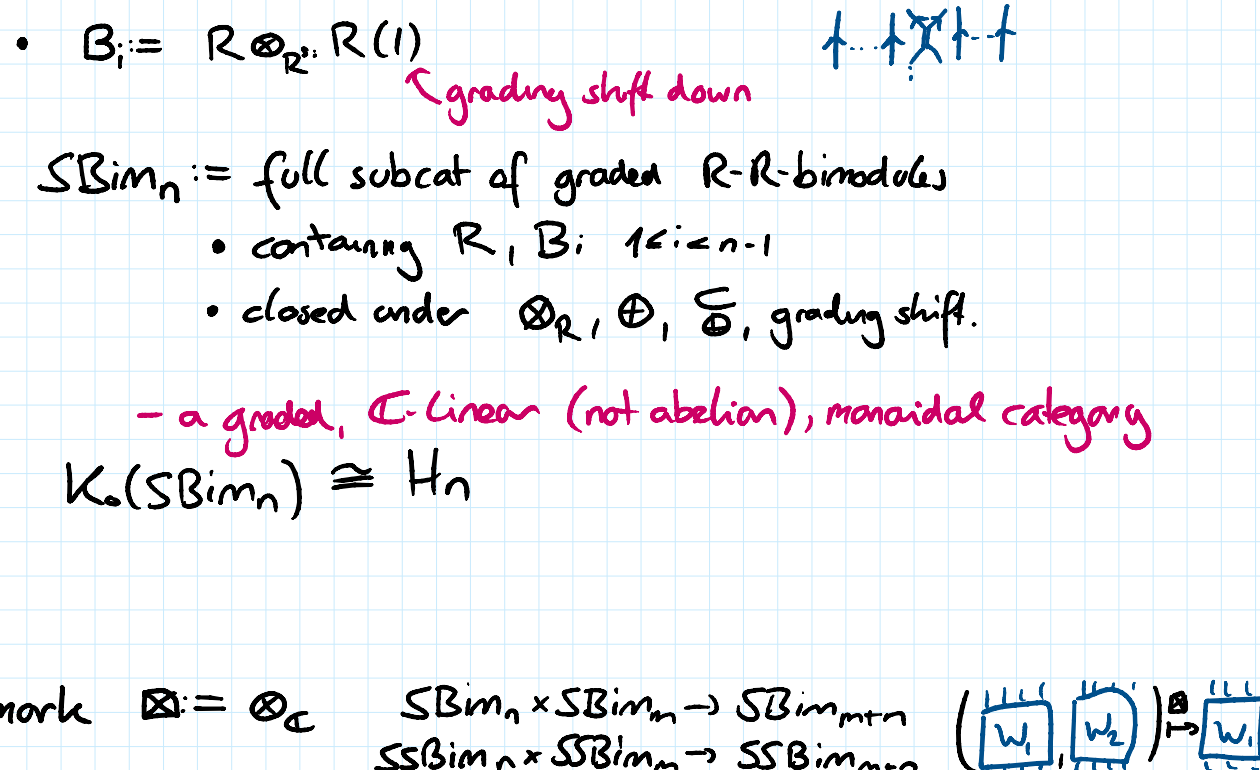 • Bᵢ := R ⊗_{R^{sᵢ}} R(1)
grading shift down
SBimₙ := full subcat of graded R-R-bimodules
• containing R, Bᵢ 1≤i≤n-1
• closed under ⊗_R, ⊕, ⊆_⊕, grading shift.
- a graded, ℂ-linear (not abelian), monoidal category
K₀(SBimₙ) ≅ Hₙ
mark ⊠ := ⊗_ℂ SBimₙ × SBimₘ → SBimₘ₊ₙ ( W₁ , W₂ ) ⊠ ↦ W₁
SSBimₙ × SSBimₘ → SSBimₘ₊ₙ